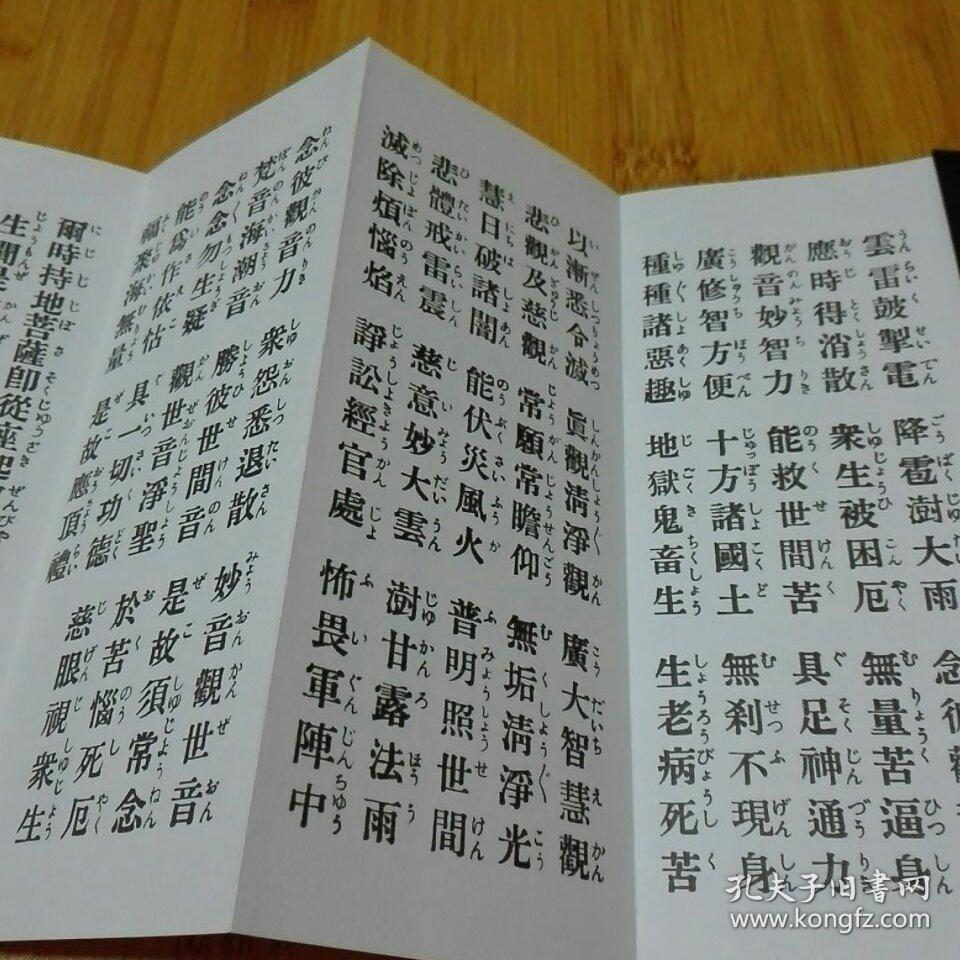 雲雷皷掣電 降雹澍大雨 念彼
應時得消散 衆生被困厄 無量苦逼身
觀音妙智力 能救世間苦 具足神通力
廣修智方便 十方諸國土 無刹不現身
種種諸惡趣 地獄鬼畜生 生老病死苦
以漸悉令滅 眞觀淸淨觀 廣大智慧觀
悲觀及慈觀 常願常瞻仰 無垢淸淨光
慧日破諸闇 能伏災風火 普明照世間
悲體戒雷震 慈意妙大雲 澍甘露法雨
滅除煩惱焰 諍訟經官處 怖畏軍陣中
念彼觀音力 衆怨悉退散 妙音觀世音
梵音海潮音 勝彼世間音 是故須常念
念念勿生疑 觀世音淨聖 於苦惱死厄
能爲作依怙 具一切功德 慈眼視衆生
福聚海無量 是故應頂禮
爾時持地菩薩卽從座起
生聞是
孔夫子旧书网
www.kongfz.com